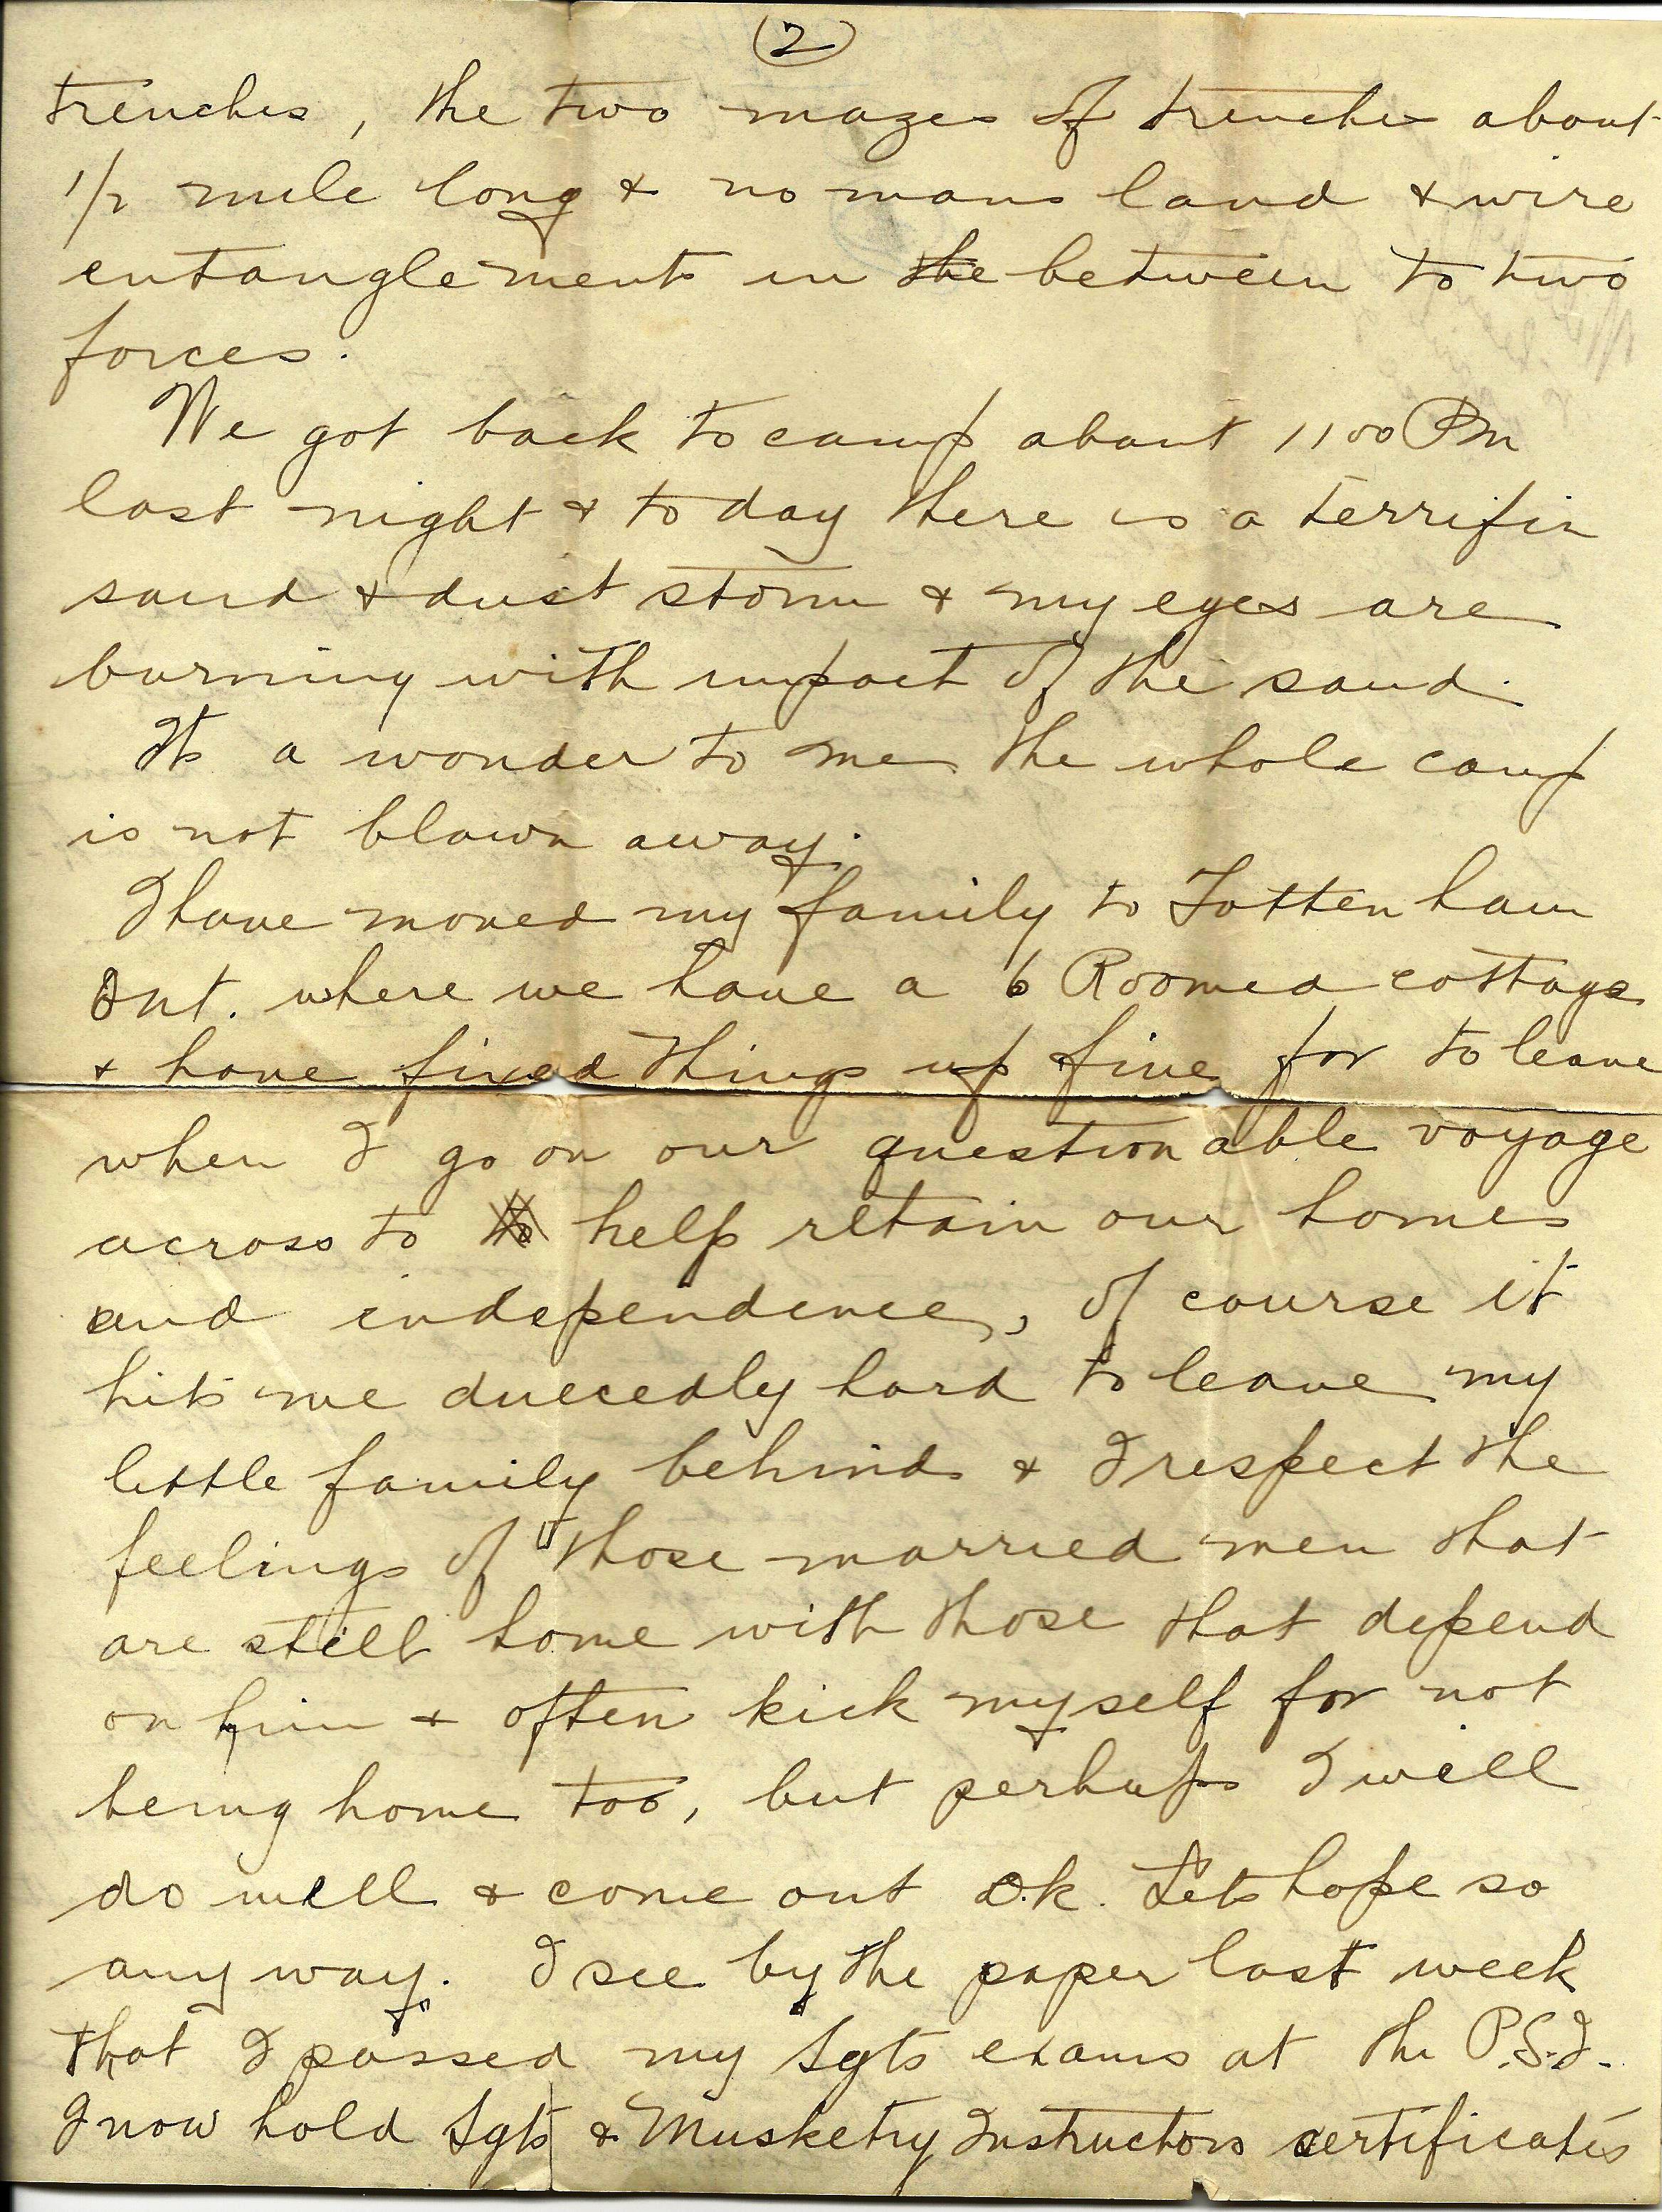 (2)
trenches, the two mazes of trenches about
1/2 mile long & no mans land & wire
entanglements in the between to two
forces.
We got back to camp about 1100 PM
last night & to day there is a terrific
sand & dust storm & my eyes are
burning with impact of the sand.
Its a wonder to me the whole camp
is not blown away.
I have moved my family to Tottenham
Ont. where we have a 6 Roomed cottage
& have fixed things up fine for to leave
when I go on our questionable voyage
across to to help retain our homes
and independence, of course it
hits me duecedly hard to leave my
little family behind & I respect the
feelings of those married men that
are still home with those that depend
on him & often kick myself for not
being home too, but perhaps I will
do well & come out O.k. Lets hope so
any way. I see by the paper last week
that I passed my Sgts exams at the P.S.I.
I now hold Sgts & Musketry Instructors certificates